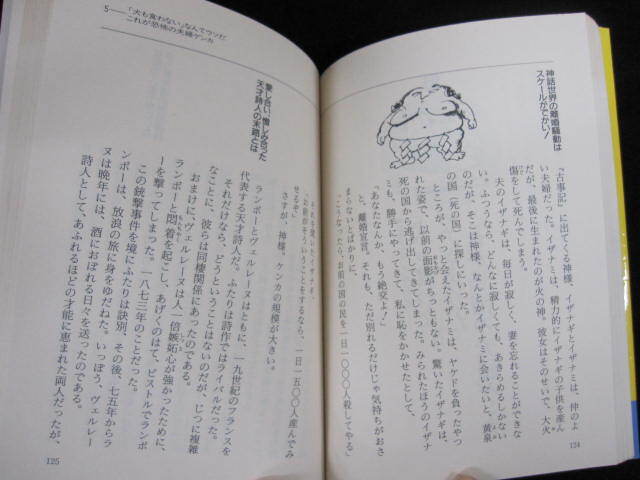 神話世界の離婚騒動は
スケールがでかい！
『古事記』に出てくる神様、イザナギとイザナミは、仲のよ
い夫婦だった。イザナミは、精力的にイザナギの子供を産ん
だが、最後に生まれたのが火の神。彼女はそのせいで、大火
傷をして死んでしまう。
夫のイザナギは、毎日が寂しく、妻を忘れることができな
い。ふつうなら、どんなに寂しくても、あきらめるしかない
のだが、そこは神様、なんとかイザナミに会いたいと、黄泉
の国（死の国）に探しにいった。
ところが、やっと会えたイザナミは、ヤケドを負ったやつ
れた姿で、以前の面影がちっともない。驚いたイザナギは、
死の国から逃げ出してきてしまった。みられたほうのイザナ
ミも、勝手にやってきて、私に恥をかかせたとして、
「あなたなんか、もう絶交よ！」
と、離婚宣言。それも、ただ別れるだけじゃ気持ちがおさ
まらないとばかりに、
「こうなったら、お前の国の民を一日一〇〇〇人殺してやる」
124
5——「犬も食わない」なんてウソだ
これが恐怖の夫婦ゲンカ
それを聞いたイザナギ、
「お前がそういうことをするなら、一日一五〇〇人産んでみ
せるぞ」
さすが、神様。ケンカの規模が大きい。
愛し合い、憎しみ合った
天才詩人の末路とは
ランボーとヴェルレーヌはともに、一九世紀のフランスを
代表する天才詩人だ。ふたりは詩作ではライバルだった。
それだけなら、どうということはないのだが、じつに複雑
なことに、彼らは同棲関係にあったのである。
おまけに、ヴェルレーヌは人一倍嫉妬心が強かったために、
ランボーと悶着を起こし、あげくのはて、ピストルでランボ
ーを撃ってしまった。一八七三年のことだった。
この銃撃事件を境にふたりは訣別。その後、七五年からラ
ンボーは、放浪の旅に身をゆだねた。いっぽう、ヴェルレー
ヌは晩年には、酒におぼれる日々を送ったのである。
詩人として、あふれるほどの才能に恵まれた両人だったが、
125